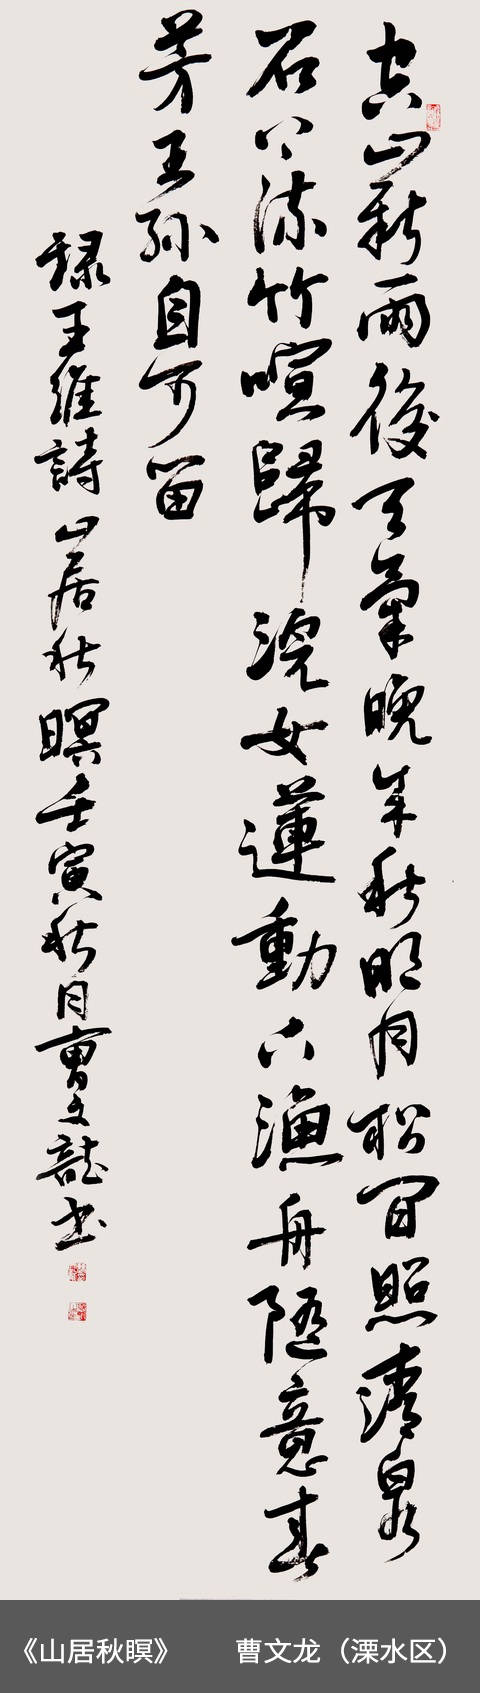 空山新雨後天氣晚来秋明月松间照清泉
石上流竹喧歸浣女蓮動下漁舟隨意春
芳王孫自可留
録王維詩山居秋暝壬寅秋月曹文龍书
《山居秋瞑》 曹文龙（溧水区）